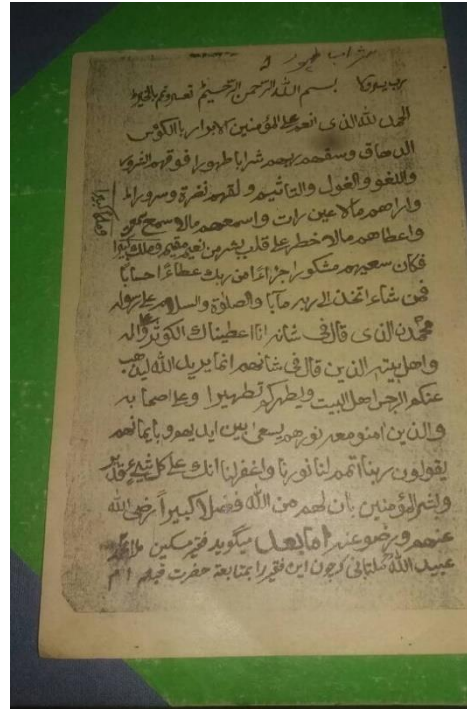 شرابا طهورا
بسم الله الرحمن الرحيم وتمم بالخير
الحمد لله الذى انعم على المؤمنين الابرار بالكوس
الدهاق وسقهم ربهم شرابا طهورا فوقهم الغرور
واللغو والغول والتاثيم ولقهم نضرة وسرورا
واراهم مالا عين رات واسمعهم مالا سمع
واعطاهم مالا خطر على قلب بشر من نعيم مقيم
فكان سعيهم مشكورا جزاءا من ربك عطاءا احسابا
فمن شاء اتخذ الى ربه مابا والصلوة والسلام على رسوله
محمدن الذى قال فى شانه انا اعطيناك الكوثر وعلى اله
واهل بيته الذين قال فى شانهم انما يريد الله ليذهب
عنكم الرجس اهل البيت ويطهركم تطهيرا وعلى اصحابه
والذين امنو معه نورهم يسعى بين ايديهم وبايمانهم
يقولون ربنا اتمم لنا نورنا واغفر لنا انك على كل شيئ قدير
وبشر المؤمنين بان لهم من الله فضلا كبيرا رضى الله
عنهم ورضو عنه اما بعد ميگويد فقير مسكين
عبيد الله ملتانى كه چون اين فقير را بمتابعة حضرت